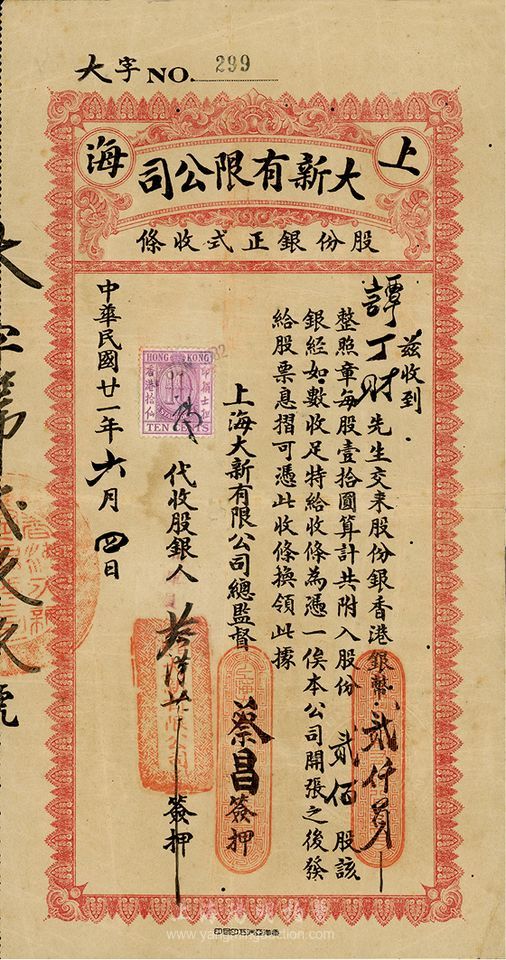 大字 NO. 299
上海
大新有限公司
股份銀正式收條
茲收到
譚丁財先生交来股份銀香港銀幣貳仟員
整照章每股壹拾圓算計共附入股份貳佰股該
銀經如數收足特給收條為憑一俟本公司開張之後發
給股票息摺可憑此收條換領此據
上海大新有限公司總監督 蔡昌 簽押
代收股銀人 簽押
HONG KONG
香港拾仙
TEN CENTS
中華民國廿一年六月四日
大字第貳玖玖號
www.yangmingauction.com